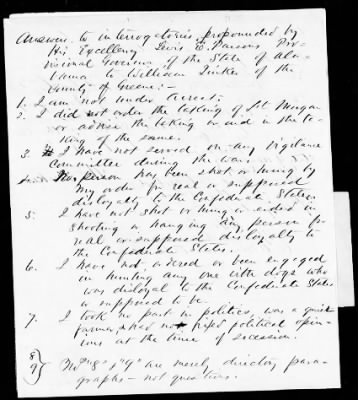 Answers to interrogatories, propounded by
His Excellency Lewis E. Parsons Pro-
visional Governor of the State of Ala-
bama to William of the
County of Greene:—
1. I am not under arrest.
2. I did not order the taking of Ft. Morgan
or advise the taking or aid in the ta-
king of the same.
3. I have not served on any vigilance
Committee during the war.
4. No person has been shot or hung by
my order for real or supposed
disloyalty to the Confederate States.
5. I have not shot or hung or aided in
shooting or hanging any person for
real or supposed disloyalty to
the Confederate States.
6. I have not ordered or been engaged
in hunting any one with dogs who
was disloyal to the Confederate States
or supposed to be.
7. I took no part in politics, was a quiet
farmer, had political opin-
ions at the time of secession.
8/9} Nos "8" & "9" are merely directory para-
graphs — not questions.